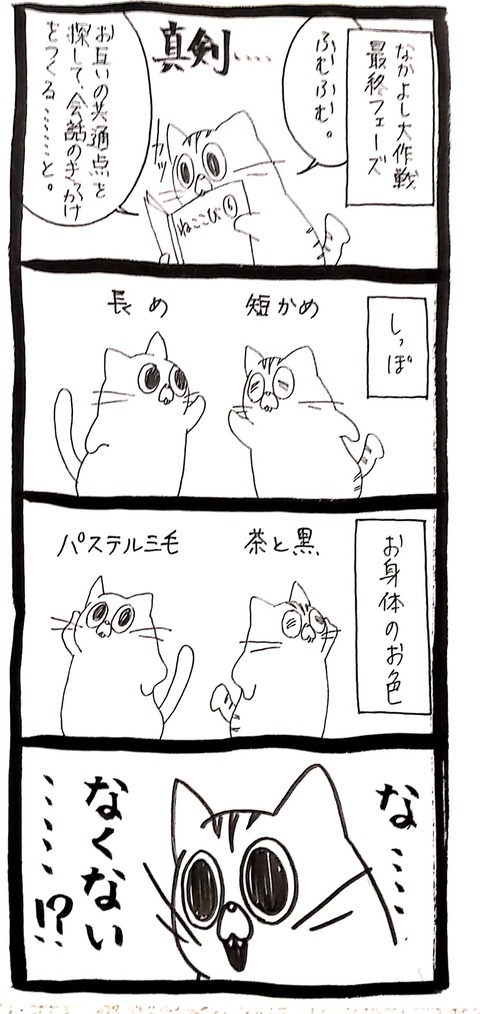 なかよし大作戦
最終フェーズ
ふむふむ。
真剣……
カッ
ねここび⑥
お互いの共通点を
探して、会話のきっかけ
をつくる……と。
しっぽ
短かめ
長め
お身体のお色
茶と黒
パステル三毛
な……
なくない
……!?